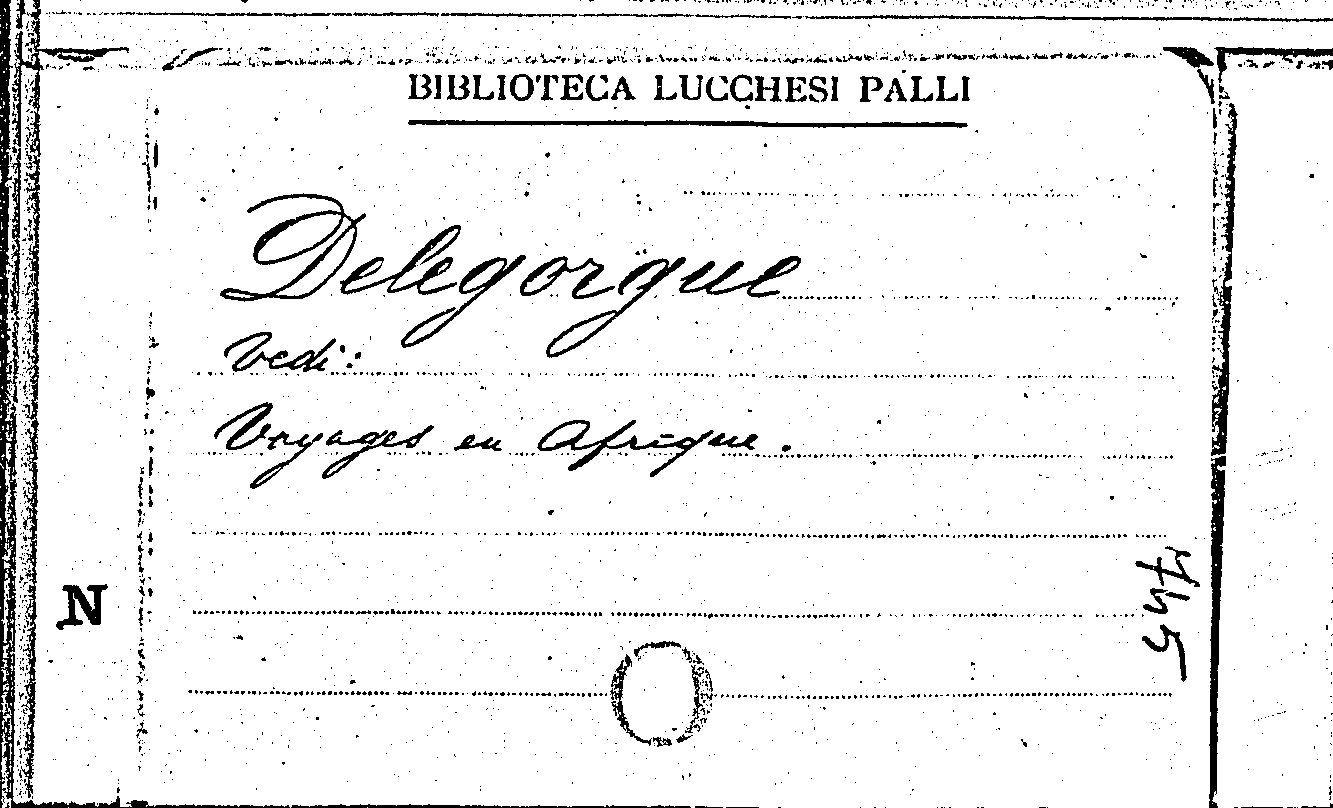 BIBLIOTECA LUCCHESI PALLI
Delegorgue
Vedi:
Voyages en Afrique.
N